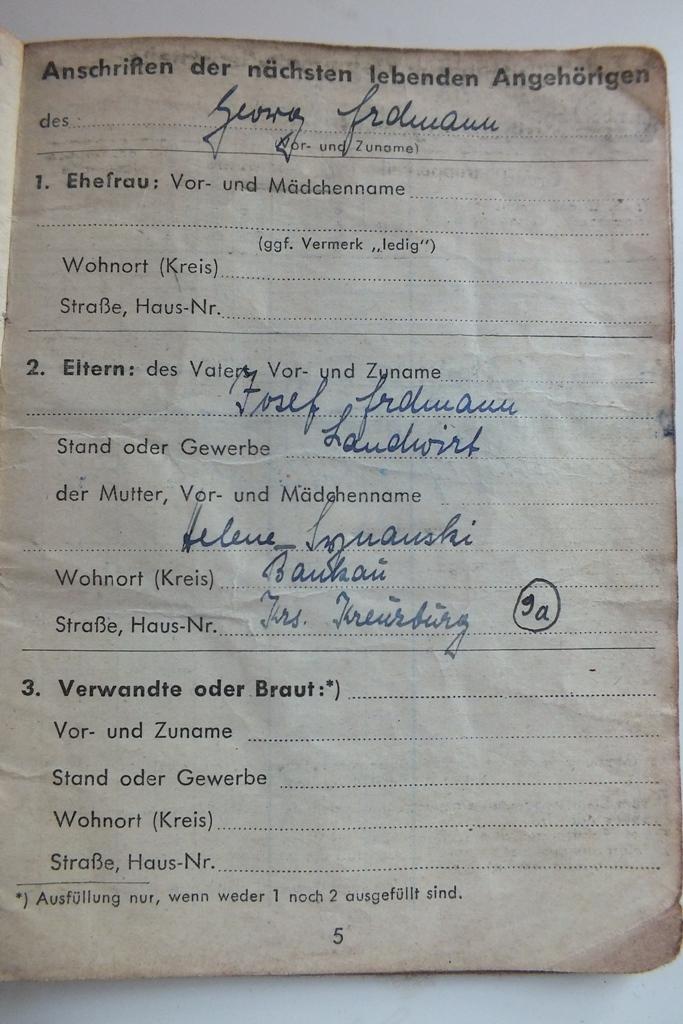 Anschriften der nächsten lebenden Angehörigen
des Georg Erdmann
(Vor- und Zuname)
1. Ehefrau: Vor- und Mädchenname
(ggf. Vermerk „ledig")
Wohnort (Kreis)
Straße, Haus-Nr.
2. Eltern: des Vaters, Vor- und Zuname
Josef Erdmann
Stand oder Gewerbe Landwirt
der Mutter, Vor- und Mädchenname
Helene
Wohnort (Kreis) Bankau
Straße, Haus-Nr. Krs. Kreuzburg 9a
3. Verwandte oder Braut:*)
Vor- und Zuname
Stand oder Gewerbe
Wohnort (Kreis)
Straße, Haus-Nr.
*) Ausfüllung nur, wenn weder 1 noch 2 ausgefüllt sind.
5